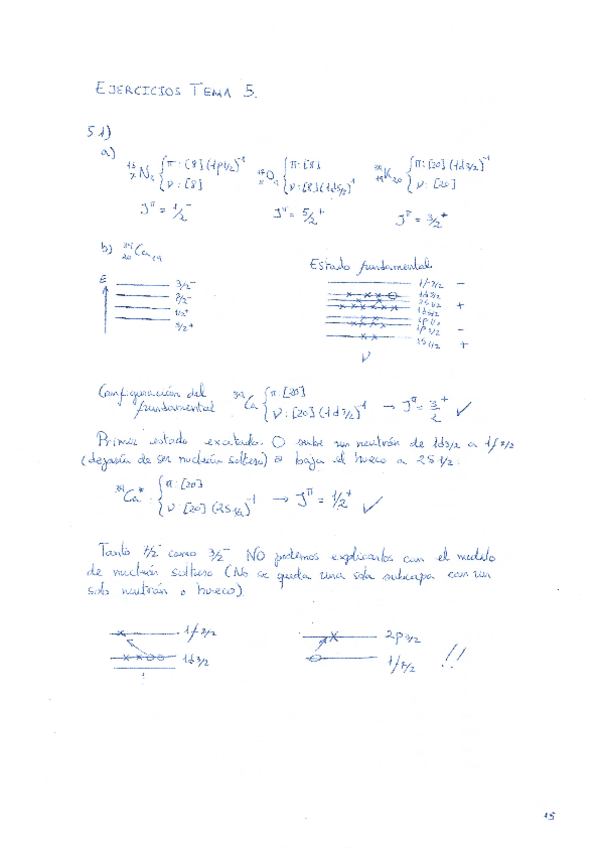 EJERCICIOS TEMA 5.
5.1)
a)
N { π: [8] (1p1/2)⁻¹ ν: [8] O { π: [8] ν: [8] (1d5/2) K₂₀ { π: [20] (1d3/2)⁻¹ ν: [20]
Jπ = 1/2⁻ Jπ = 5/2⁺ Jπ = 3/2⁺
b) ³⁹₂₀Ca₁₉
Estado fundamental
E
3/2⁻
7/2⁻
1/2⁺
3/2⁺
1f7/2 −
1d3/2
2s1/2 +
1d5/2
1p1/2
1p3/2 −
1s1/2 +
ν
Configuración del fundamental ³⁹Ca { π: [20] ν: [20] (1d3/2)⁻¹ → Jπ = 3/2⁺ ✓
Primer estado excitado. O sube un neutrón de 1d3/2 a 1f7/2
(dejaría de ser nucleón soltero) o baja el hueco a 2S1/2.
³⁹Ca* { π: [20] ν: [20] (2S1/2)⁻¹ → Jπ = 1/2⁺ ✓
Tanto 7/2⁻ como 3/2⁻ NO podemos explicarlos con el modelo
de nucleón soltero (No se queda una sola subcapa con un
solo neutrón o hueco)
1f7/2 2p3/2
1d3/2 1f7/2 !!
15